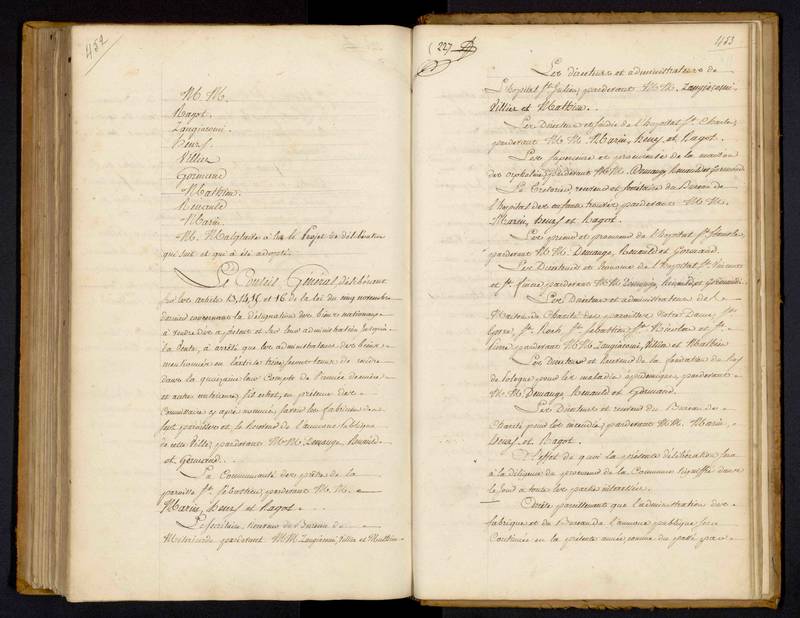 452
M. M.
Ragot.
Zangiacomi.
heurs.
Villier
Germand
Mathieu.
Renauld
Marin.
M. Malglaive a lu le Projet de délibération
qui suit et qui a été adopté.
Le Conseil Général, délibérant
sur les articles 13, 14, 15 et 16 de la loi du cinq novembre
dernier concernant la désignation des biens nationaux
à vendre dès à présent et sur leur administration jusqu'à
la Vente, a arrêté que les administrateurs des biens
mentionnés en l'article treize seront tenus de rendre
dans la quinzaine leur Compte de l'année dernière
et autres antérieures, s'il echet, en présence des
Commissaires cy après nommés, savoir les fabriques des
sept paroisses et le Receveur de l'aumone publique
de cette Ville, pardevant M. M. Demange, Renauld
et Germand.
La Communauté des prêtres de la
paroisse St. Sébastien, pardevant M. M.
Marin, heurs et Ragot.
Le Secrétaire, Receveur du Bureau de
Miséricorde pardevant M. M. Zangiacomi, Villier et Mathieu.
(227)
453
Les directeurs et administrateurs de
l'hopital St. Julien, pardevant M. M. Zangiacomi
Villier et Mathieu.
Les Directeurs et Sindic de l'hopital St. Charles,
pardevant M. M. Marin, heurs et Ragot.
Les supérieure et proviseuse de la maison
des orphelines, pardevant M. M. Demange, Renauld et Germand
Le Trésorier, receveur et Secrétaire du Bureau de
l'hopital des enfans trouvés, pardevant M. M.
Marin, heurs et Ragot.
Les prieur et procureur de l'hopital St.
pardevant M. M. Demange, Renauld et Germand.
Les Directeurs et Econome de l'hopital St. Vincent
et St. fiacre, pardevant M. M. Demange, Renauld et Germand.
Les Directeurs et administrateurs de la
Maison de Charité des paroisses Notre Dame, St.
Epvre, St. Roch, St. Sébastien, St. Nicolas et St.
Pierre pardevant M. M. Zangiacomi, Villier et Mathieu
Les Directeurs et Receveur de la fondation du Roy
de Pologne, pour les maladies épidémiques, pardevant
M. M. Demange, Renauld et Germand.
Les Directeurs et receveur du Bureau de
Charité pour les incendiés, pardevant M. M. Marin,
heurs et Ragot.
A l'effet de quoi la présente délibération sera
à la diligence du procureur de la Commune signiffiée dans
le jour à toutes les parties intéressées.
Arrête pareillement que l'administration des
fabriques et du Bureau de l'aumone publique sera
Continuée en la présente année, comme du passé par